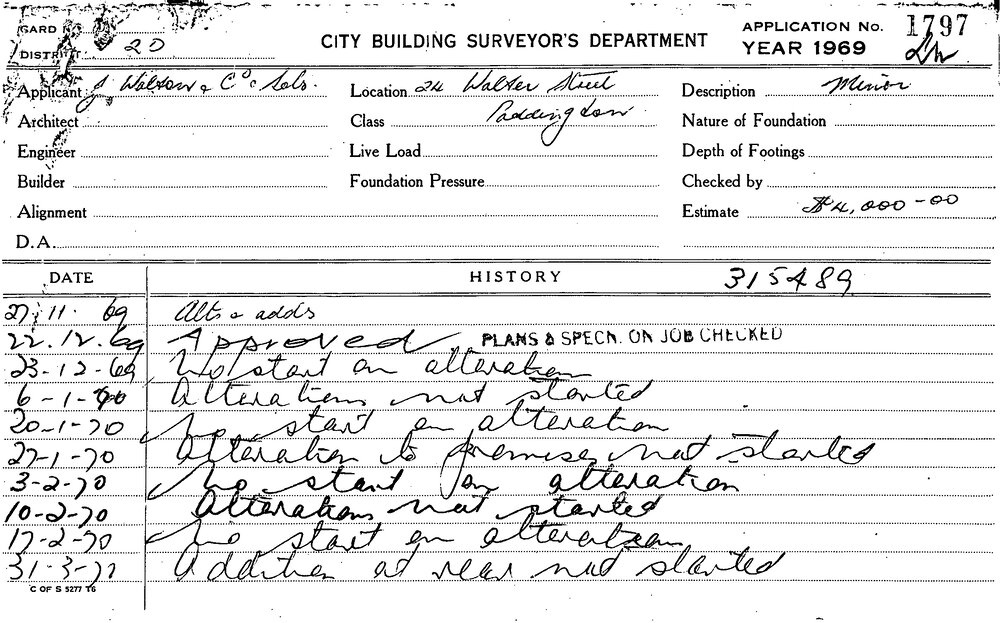 CARD No
DISTRICT 20
CITY BUILDING SURVEYOR'S DEPARTMENT
APPLICATION No. 1797
YEAR 1969
Applicant J. Watson & Co. Sols.
Location 24 Walter Street
Description Minor
Architect
Class Paddington
Nature of Foundation
Engineer
Live Load
Depth of Footings
Builder
Foundation Pressure
Checked by
Alignment
Estimate $4,000-00
D.A.
DATE HISTORY 315489
27.11.69 Alts & adds
22.12.69 Approved PLANS & SPECN. ON JOB CHECKED
23-12-69 No start on alteration
6-1-70 Alterations not started
20-1-70 No start on alteration
27-1-70 Alteration to premises not started
3-2-70 No start on alteration
10-2-70 Alterations not started
17-2-70 No start on alteration
31-3-71 Addition at rear not started
C OF S 5277 T6